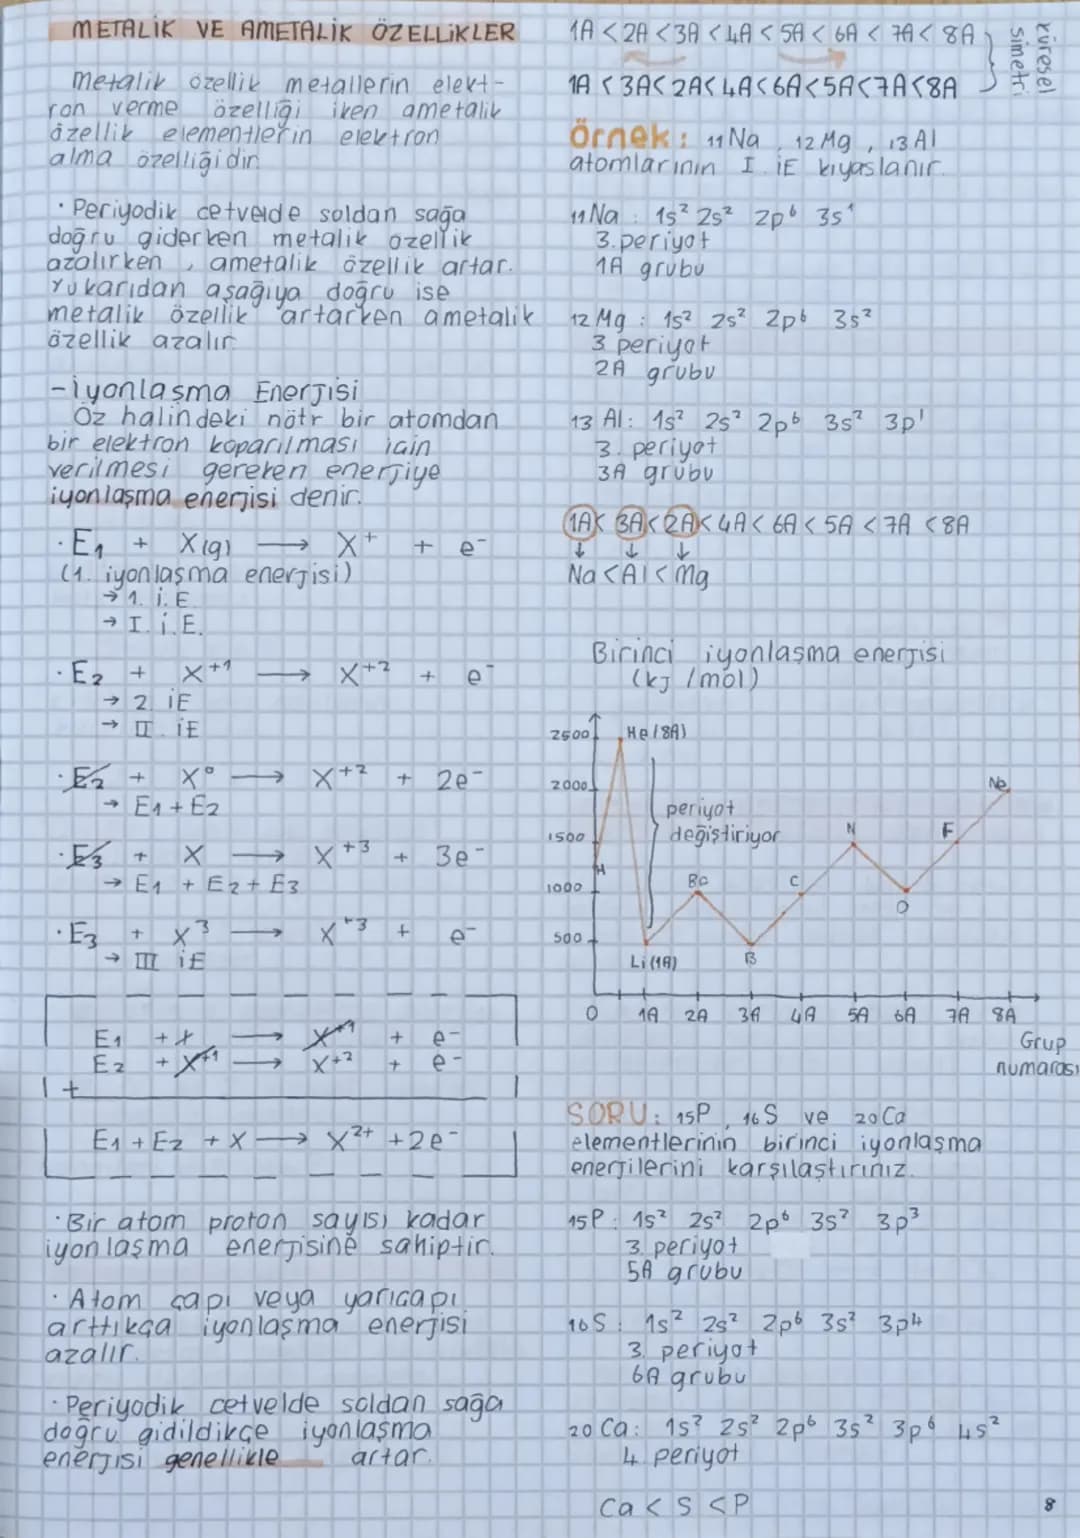 METALİK VE AMETALİK ÖZELLİKLER
Metalik özellik metallerin elekt-
ron verme özelliği iken ametalik
özellik elementlerin elektron
alma özelliğidir.
· Periyodik cetvelde soldan sağa
doğru giderken metalik özellik
azalırken, ametalik özellik artar.
Yukarıdan aşağıya doğru ise
metalik özellik artarken ametalik
özellik azalır.
-İyonlaşma Enerjisi
Öz halindeki nötr bir atomdan
bir elektron koparılması için
verilmesi gereken enerjiye
iyonlaşma enerjisi denir.
· E₁ + X(g) → X⁺ + e⁻
(1. iyonlaşma enerjisi)
→ 1. İ.E.
→ I. İ.E.
· E₂ + X⁺¹ → X⁺² + e⁻
→ 2. İE
→ II. İE
· E₂ + X⁰ → X⁺² + 2e⁻
→ E₁ + E₂
· E₃ + X → X⁺³ + 3e⁻
→ E₁ + E₂ + E₃
· E₃ + X³ → X⁺³ + e⁻
→ III İE
E₁ + X → X⁺¹ + e⁻
E₂ + X⁺¹ → X⁺² + e⁻
+
E₁ + E₂ + X → X²⁺ + 2e⁻
· Bir atom proton sayısı kadar
iyonlaşma enerjisine sahiptir.
· Atom çapı veya yarıçapı
arttıkça iyonlaşma enerjisi
azalır.
· Periyodik cetvelde soldan sağa
doğru gidildikçe iyonlaşma
enerjisi genellikle artar.
1A < 2A < 3A < 4A < 5A < 6A < 7A < 8A
1A < 3A < 2A < 4A < 6A < 5A < 7A < 8A
küresel
simetri
Örnek: ₁₁Na, ₁₂Mg, ₁₃Al
atomlarının I. İE kıyaslanır.
₁₁Na: 1s² 2s² 2p⁶ 3s¹
3. periyot
1A grubu
₁₂Mg: 1s² 2s² 2p⁶ 3s²
3. periyot
2A grubu
₁₃Al: 1s² 2s² 2p⁶ 3s² 3p¹
3. periyot
3A grubu
1A < 3A < 2A < 4A < 6A < 5A < 7A < 8A
↓ ↓ ↓
Na < Al < Mg
Birinci iyonlaşma enerjisi
(kj /mol)
2500
He (8A)
2000
Ne
periyot
değiştiriyor
1500
N
F
H
1000
Be
C
O
500
Li (1A)
B
0 1A 2A 3A 4A 5A 6A 7A 8A
Grup
numarası
SORU: ₁₅P, ₁₆S ve ₂₀Ca
elementlerinin birinci iyonlaşma
enerjilerini karşılaştırınız.
₁₅P: 1s² 2s² 2p⁶ 3s² 3p³
3. periyot
5A grubu
₁₆S: 1s² 2s² 2p⁶ 3s² 3p⁴
3. periyot
6A grubu
₂₀Ca: 1s² 2s² 2p⁶ 3s² 3p⁶ 4s²
4. periyot
Ca < S < P
8